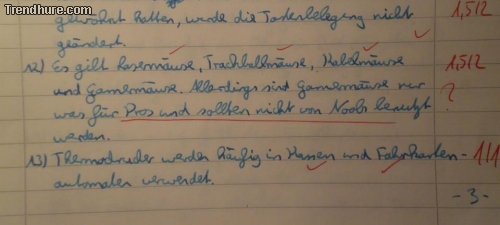 Trendhure.com
gewohnt hatten, wurde die Tastenbelegung nicht 1,5/2
geändert.
12) Es gibt Lasermäuse, Trackballmäuse, Halbmäuse 1,5/2
und Gamermäuse. Allerdings sind Gamermäuse nur ?
was für Pros und sollten nicht von Noobs benutzt
werden.
13) Thermodrucker werden häufig in Kassen und Fahrkarten- 1/1
automaten verwendet.
- 3 -